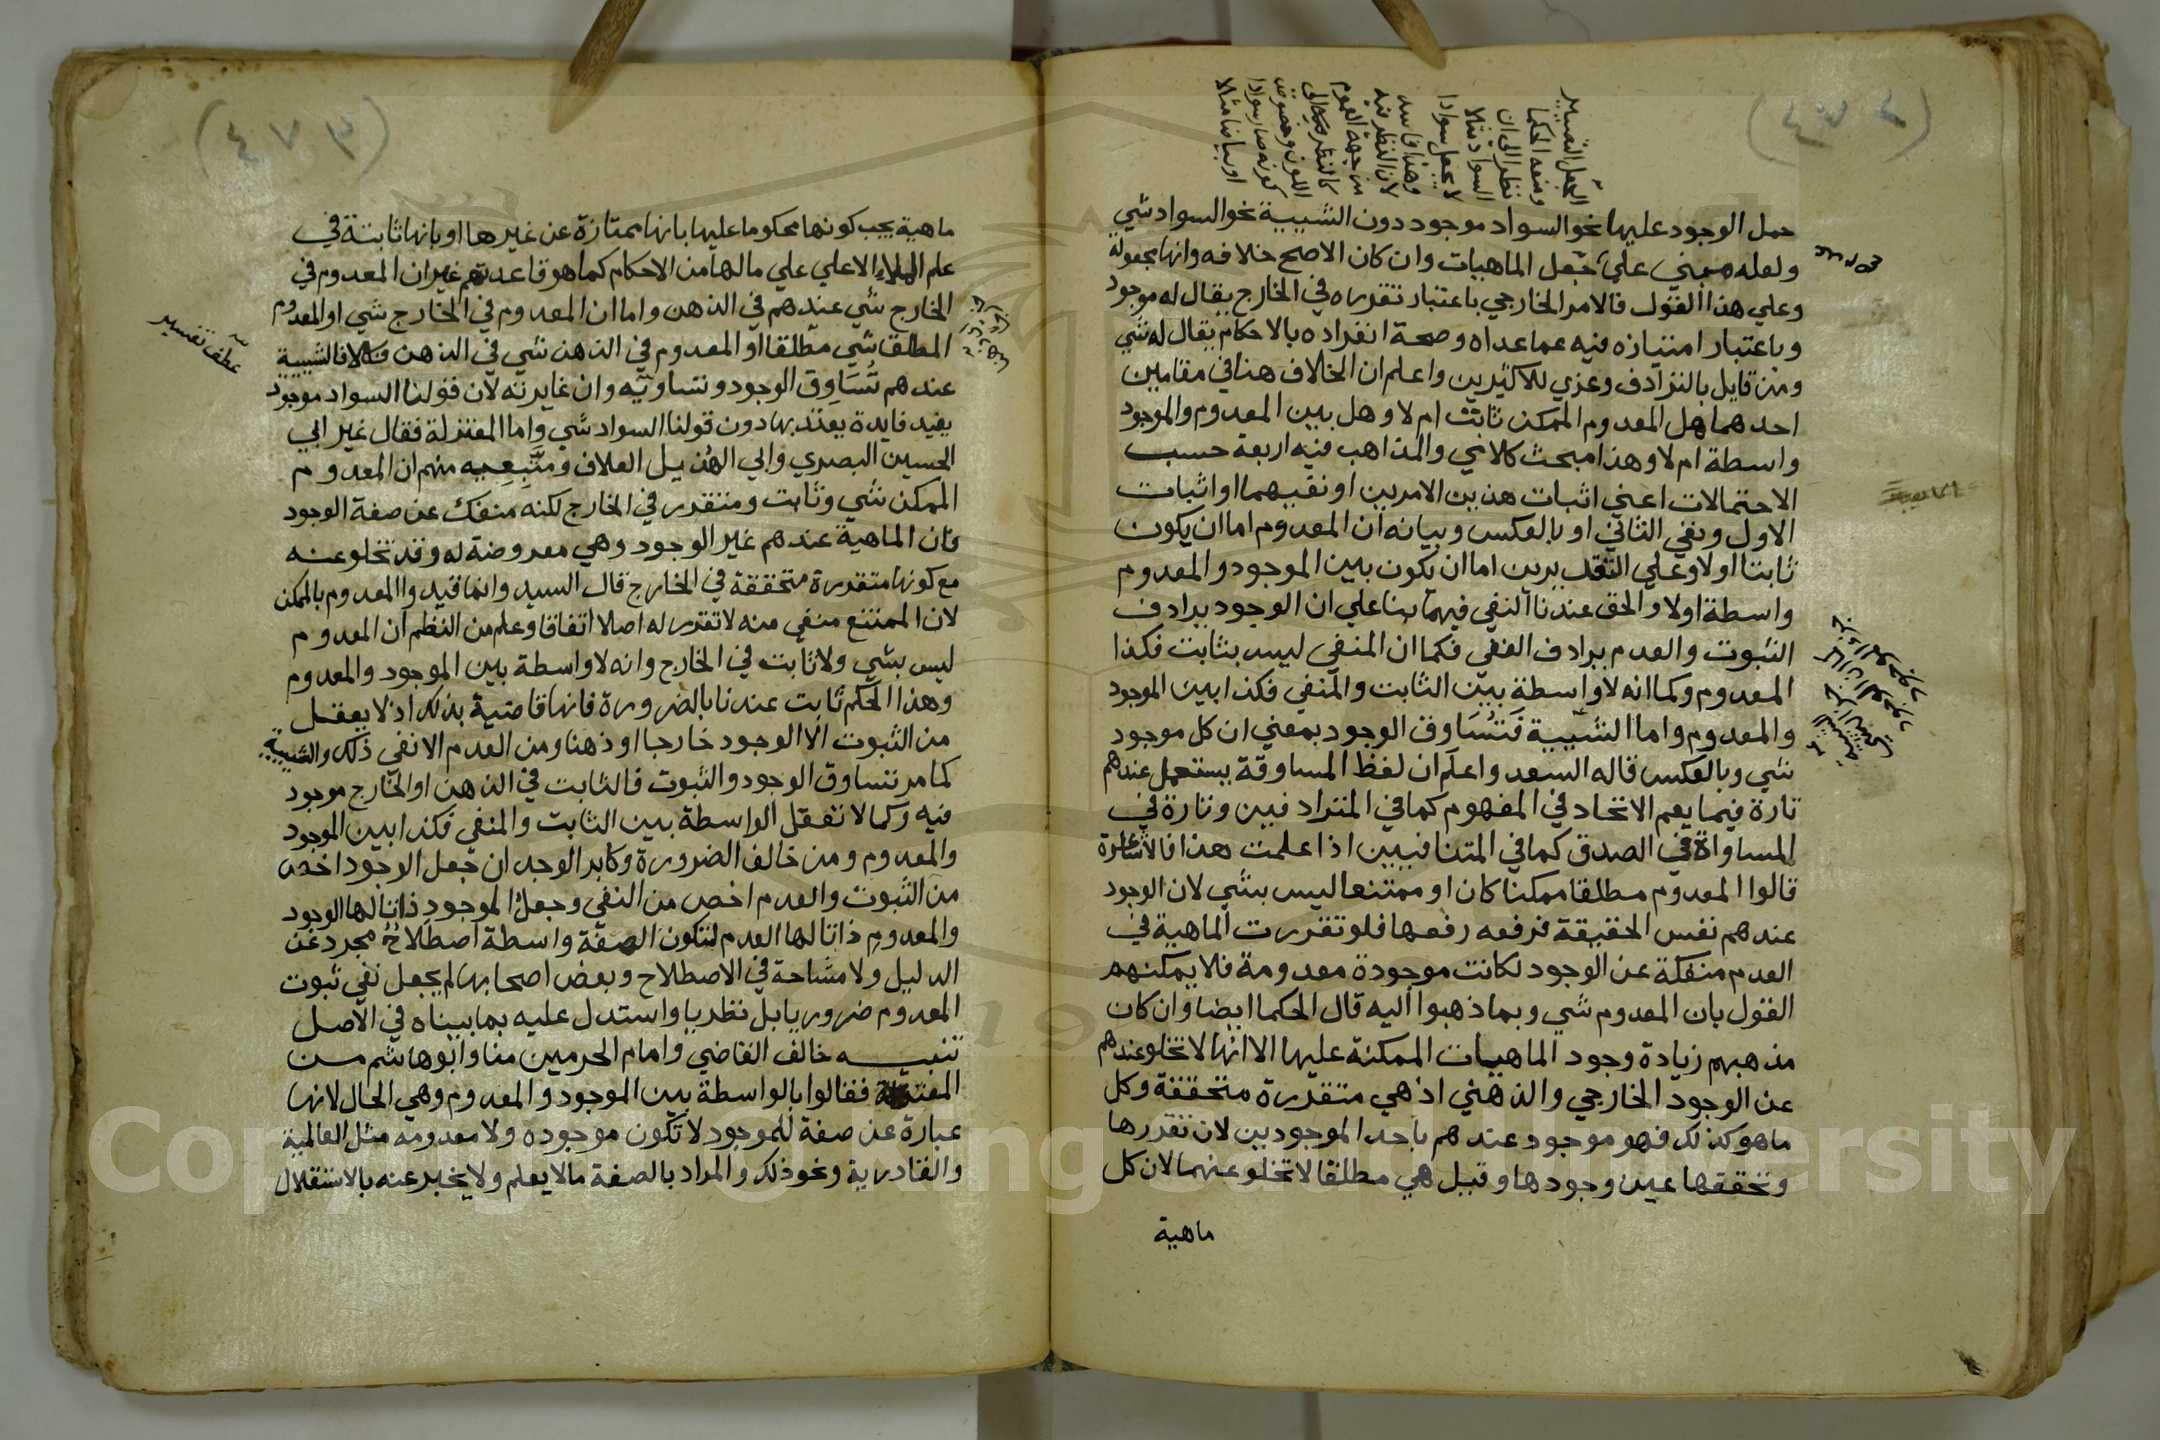 حمل الوجود عليها نحو السواد موجود دون الشيية نحو السواد شي
ولعله مبني علي جعل الماهيات وان كان الاصح خلافه وانها مجعولة
وعلي هذا القول فالامر الخارجي باعتبار تقرره في الخارج يقال له موجود
وباعتبار امتيازه فيه عما عداه وصحة انفراده بالاحكام يقال له شي
ومن قايل بالترادف وعزي للاكثرين واعلم ان الخلاف هنا في مقامين
احدهما هل المعدوم الممكن ثابت ام لا وهل بين المعدوم والموجود
واسطة ام لا وهذا مبحث كلامي والمذاهب فيه اربعة حسب
الاحتمالات اعني اثبات هذين الامرين او نفيهما او اثبات
الاول ونفي الثاني او بالعكس وبيانه ان المعدوم اما ان يكون
ثابتا اولا وعلي التقديرين اما ان يكون بين الموجود والمعدوم
واسطة اولا والحق عندنا النفي فيهما بنا علي ان الوجود يرادف
الثبوت والعدم يرادف النفي فكما ان المنفي ليس بثابت فكذا
المعدوم وكما انه لا واسطة بين الثابت والمنفي فكذا بين الموجود
والمعدوم واما الشيية فتساوق الوجود بمعني ان كل موجود
شي وبالعكس قاله السعد واعلم ان لفظ المساوقة يستعمل عندهم
تارة فيما يعم الاتحاد في المفهوم كما في المترادفين وتارة في
المساواة في الصدق كما في المتنافيين اذا علمت هذا فالاشاعرة
قالوا المعدوم مطلقا ممكنا كان او ممتنعا ليس بشي لان الوجود
عندهم نفس الحقيقة فرفعه رفعها فلو تقررت الماهية في
العدم منفكة عن الوجود لكانت موجودة معدومة فلا يمكنهم
القول بان المعدوم شي وبما ذهبوا اليه قال الحكما ايضا وان كان
مذهبهم زيادة وجود الماهيات الممكنة عليها الا انها لا تخلو عندهم
عن الوجود الخارجي والذهني اذ هي متقررة متحققة وكل
ما هو كذلك فهو موجود عندهم باحد الموجودين لان تقررها
وتحققها عين وجودها وقيل هي مطلقا لا تخلو عنهما لان كل
ماهية
الجعل التصيير
ومنعه الحكما
نظرا الي ان
السواد مثلا
لا يجعل سوادا
وهذا فاسد
لان النظر فيه
من جهة العموم
كالنظر الي
اللون وخصوص
كونه صار سوادا
او بياضا مثلا
(٤٧٣)
ماهية يجب كونها محكوما عليها بانها ممتازة عن غيرها او بانها ثابتة في
علم الملاء الاعلي علي مالها من الاحكام كما هو قاعدتهم غير ان المعدوم في
الخارج شي عندهم في الذهن واما ان المعدوم في الخارج شي او المعدوم
المطلق شي مطلقا او المعدوم في الذهن شي في الذهن فكلا فالشيية
عندهم تساوق الوجود وتساويه وان غايرته لان قولنا السواد موجود
يفيد فايدة يعتد بها دون قولنا السواد شي واما المعتزلة فقال غير ابي
الحسين البصري وابي الهذيل العلاف ومتبعيه منهم ان المعدوم
الممكن شي وثابت ومتقرر في الخارج لكنه منفك عن صفة الوجود
فان الماهية عندهم غير الوجود وهي معروضة له وقد تخلو عنه
مع كونها متقررة متحققة في الخارج قال السيد وانما قيدوا المعدوم بالممكن
لان الممتنع منفي منه لا تقرر له اصلا اتفاقا وعلم من النظم ان المعدوم
ليس بشي ولا ثابت في الخارج وانه لا واسطة بين الموجود والمعدوم
وهذا الحكم ثابت عندنا بالضرورة فانها قاضية بذلك اذ لا يعقل
من الثبوت الا الوجود خارجا او ذهنا ومن العدم الا نفي ذلك والشيية
كما مر تساوق الوجود والثبوت فالثابت في الذهن او الخارج موجود
فيه وكما لا تعقل الواسطة بين الثابت والمنفي فكذا بين الموجود
والمعدوم ومن خالف الضرورة وكابر الوجد ان جعل الوجود اخص
من الثبوت والعدم اخص من النفي وجعل الموجود ذاتا لها الوجود
والمعدوم ذاتا لها العدم لتكون الصفة واسطة اصطلاح مجرد عن
الدليل ولا مشاحة في الاصطلاح وبعض اصحابها لم يجعل نفي ثبوت
المعدوم ضروريا بل نظريا واستدل عليه بما بيناه في الاصل
تنبيه خالف القاضي وامام الحرمين منا وابو هاشم من
المعتزلة فقالوا بالواسطة بين الموجود والمعدوم وهي الحال لانها
عبارة عن صفة للموجود لا تكون موجوده ولا معدومه مثل العالمية
والقادرية ونحو ذلك والمراد بالصفة ما لا يعلم ولا يخبر عنه بالاستقلال
عطف تفسير
(٤٧٣)
Copyright © King Saud University